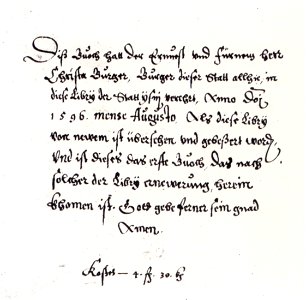 Diß Buoch hatt der Ernuest vnd fürnem herr
Christa Burger, Burger dieser Statt allhie, in
diese Libry der Statt verehrt, Anno Dõi
1596. mense Augusto. Als diese Libry
von newem ist übersehen vnd gebeßert word,
Vnd ist dieses das erste Buoch, das nach
solcher der Libry ernewerung, herein
khomen ist. Gott gebe ferner sein gnad
Amen.
Kostet — 4. fl. 30.